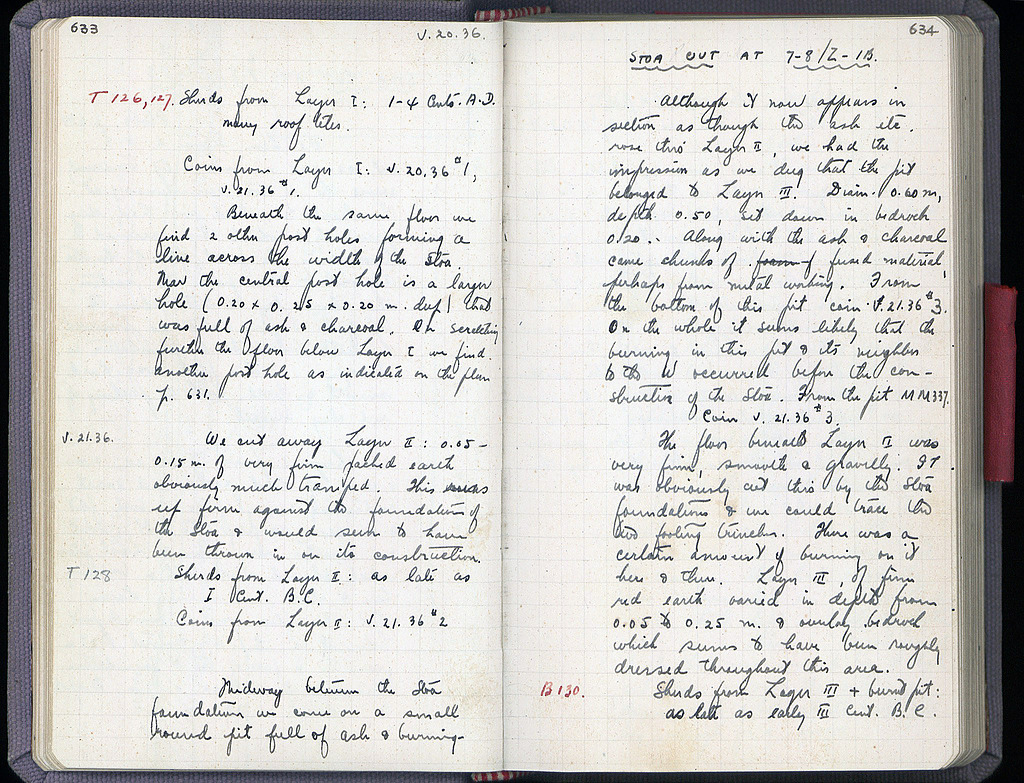 633
V.20.36.
T 126, 127. Sherds from Layer I: 1-4 Cents. A.D.
many roof tiles.
Coins from Layer I: V.20.36 #1,
V.21.36 #1.
Beneath the same floor we
find 2 other post holes forming a
line across the width of the Stoa.
Near the central post hole is a larger
hole (0.20 x 0.25 x 0.20 m. deep) that
was full of ash & charcoal. On scratching
further the floor below Layer I we find
another post hole as indicated on the plan
p. 631.
V.21.36. We cut away Layer II: 0.05-
0.15 m. of very firm packed earth
obviously much tramped. This
up firm against the foundations of
the Stoa & would seem to have
been thrown in on its construction.
T 128 Sherds from Layer II: as late as
I Cent. B.C.
Coins from Layer II: V.21.36 #2
Midway between the Stoa
foundations we come on a small
round pit full of ash & burning.
634
STOA CUT AT 7-8/Z-IB.
Although it now appears in
section as though the ash etc.
rose thro' Layer II, we had the
impression as we dug that the pit
belonged to Layer III. Diam. 0.60 m,
depth 0.50, set down in bedrock
0.20. Along with the ash & charcoal
came chunks of fused material,
perhaps from metal working. From
the bottom of this pit coin V.21.36 #3.
On the whole it seems likely that the
burning in this pit & its neighbor
to the W occurred before the con-
struction of the Stoa. From the pit MM337.
Coin V.21.36 #3.
The floor beneath Layer II was
very firm, smooth & gravelly. It
was obviously cut thro' by the Stoa
foundations & we could trace the
two footing trenches. There was a
certain amount of burning on it
here & there. Layer III, of firm
red earth varied in depth from
0.05 to 0.25 m. & overlay bedrock
which seems to have been roughly
dressed throughout this area.
B 130. Sherds from Layer III + burnt pit:
as late as early III Cent. B.C.